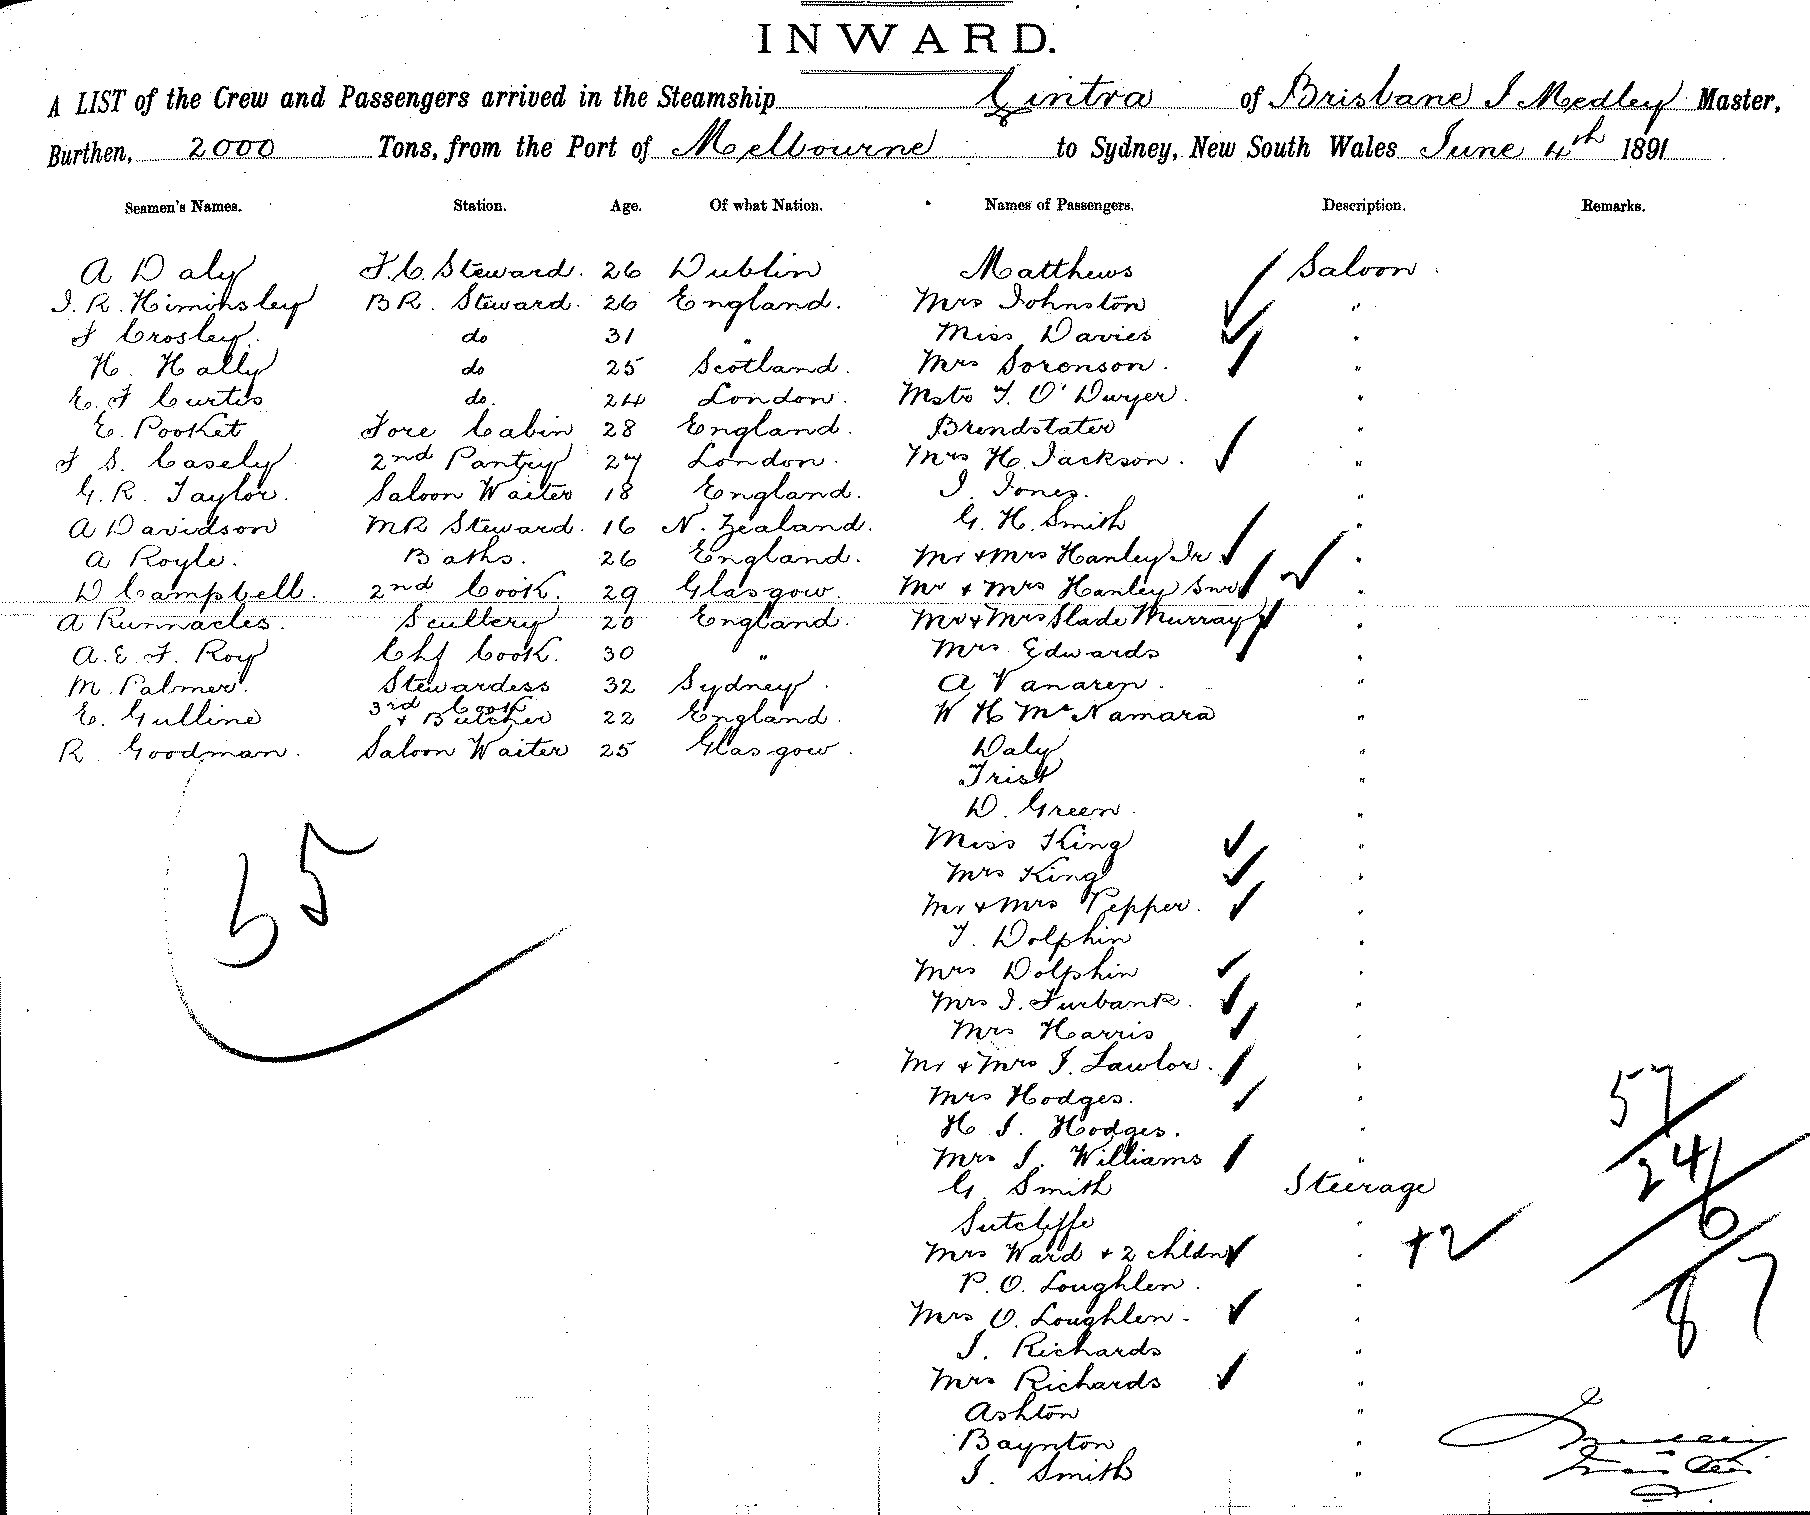 INWARD.
A LIST of the Crew and Passengers arrived in the Steamship Cintra of Brisbane J Medley Master,
Burthen, 2000 Tons, from the Port of Melbourne to Sydney, New South Wales June 4th 1891
Seamen's Names. Station. Age. Of what Nation. Names of Passengers. Description. Remarks.
A Daly F.C. Steward. 26 Dublin Matthews Saloon.
J. R. Himinsley BR. Steward. 26 England. Mrs Johnston "
F Crosley. do 31 " Miss Davies "
H. Hally do 25 Scotland. Mrs Sorenson. "
E. F Curtis do. 24 London. Mstr T. O'Dwyer. "
E. Pooket Fore Cabin 28 England. Brendstater "
F S. Casely 2nd Pantry 27 London. Mrs H. Jackson. "
G. R. Taylor. Saloon Waiter 18 England. J. Jones. "
A Davidson MR Steward. 16 N. Zealand. G. H. Smith "
A Royle. Baths. 26 England. Mr + Mrs Hanley Jr "
D Campbell. 2nd Cook. 29 Glasgow. Mr + Mrs Hanley Snr "
A Runnacles. Scullery 20 England. Mr + Mrs Slade Murray "
A. E. F. Roy Chf Cook. 30 " Mrs Edwards "
M. Palmer. Stewardess 32 Sydney. A Vanaren. "
E. Gulline 3rd Cook + Butcher 22 England. W H McNamara "
R. Goodman. Saloon Waiter 25 Glasgow. Daly "
Trist "
D. Green. "
Miss King "
Mrs King "
Mr + Mrs Pepper. "
T. Dolphin "
Mrs Dolphin "
Mrs J. Furbank. "
Mrs Harris "
Mr + Mrs J. Lawlor. "
Mrs Hodges. "
H J. Hodges. "
Mrs J. Williams "
G. Smith Steerage
Sutcliffe "
Mrs Ward + 2 chldn " +2
P. O. Loughlen. "
Mrs O. Loughlen. "
J. Richards "
Mrs Richards "
Ashton "
Baynton "
J. Smith "
55
57
24
6
87